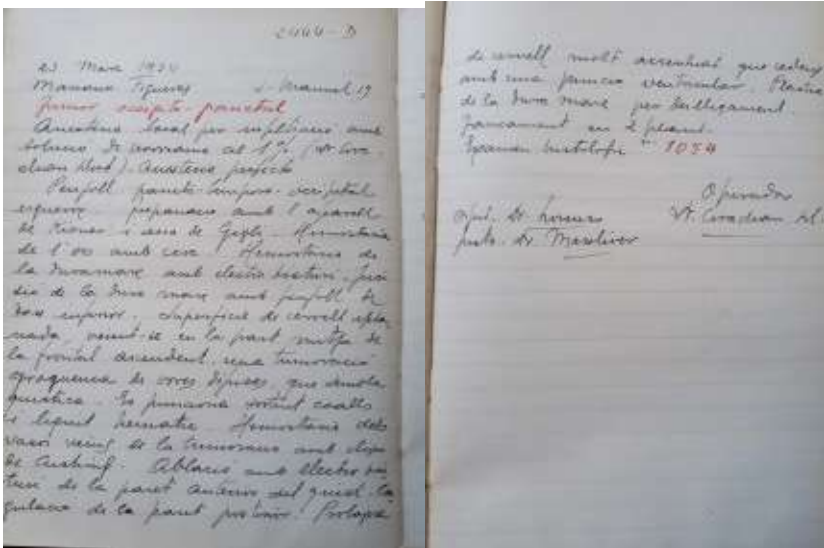 2444-D
23 Març 1934
Mariano Figueras S. Manuel 19
Tumor occipito-parietal
Anestesia local per infiltració amb
solució de novocaina al 1% (Dr Cora
chan Llort). Anestesia perfecta
Penjoll parieto-temporo-occipital
esquerre preparació amb l'aparell
de i serra de Gigli. Hemostasia
de l'os amb cera. Hemostasia de
la duramare amb electro bisturí. Inci
sió de la dura mare amb penjoll de
base superior. Superficie de cervell apla
nada, veient-se en la part mitja de
la frontal ascendent, una tumoració
de vores difuses, que sembla
quística. Es punciona sortint coalls
i líquit hematic. Hemostasia dels
vasos veins de la tumoració amb clips
de Cushing. Ablació amb electro bis
turí de la paret anterior del quist. Coa
gulació de la paret posterior. Prolapse
de cervell molt accentuat que cedeix
amb una puncio ventricular. Plastia
de la dura mare per
Tancament en 2 plans.
Examen histolofic nº 1054
Operador
Ajut. Dr. Dr. Corachan Ll.
Insts. Dr Masoliver